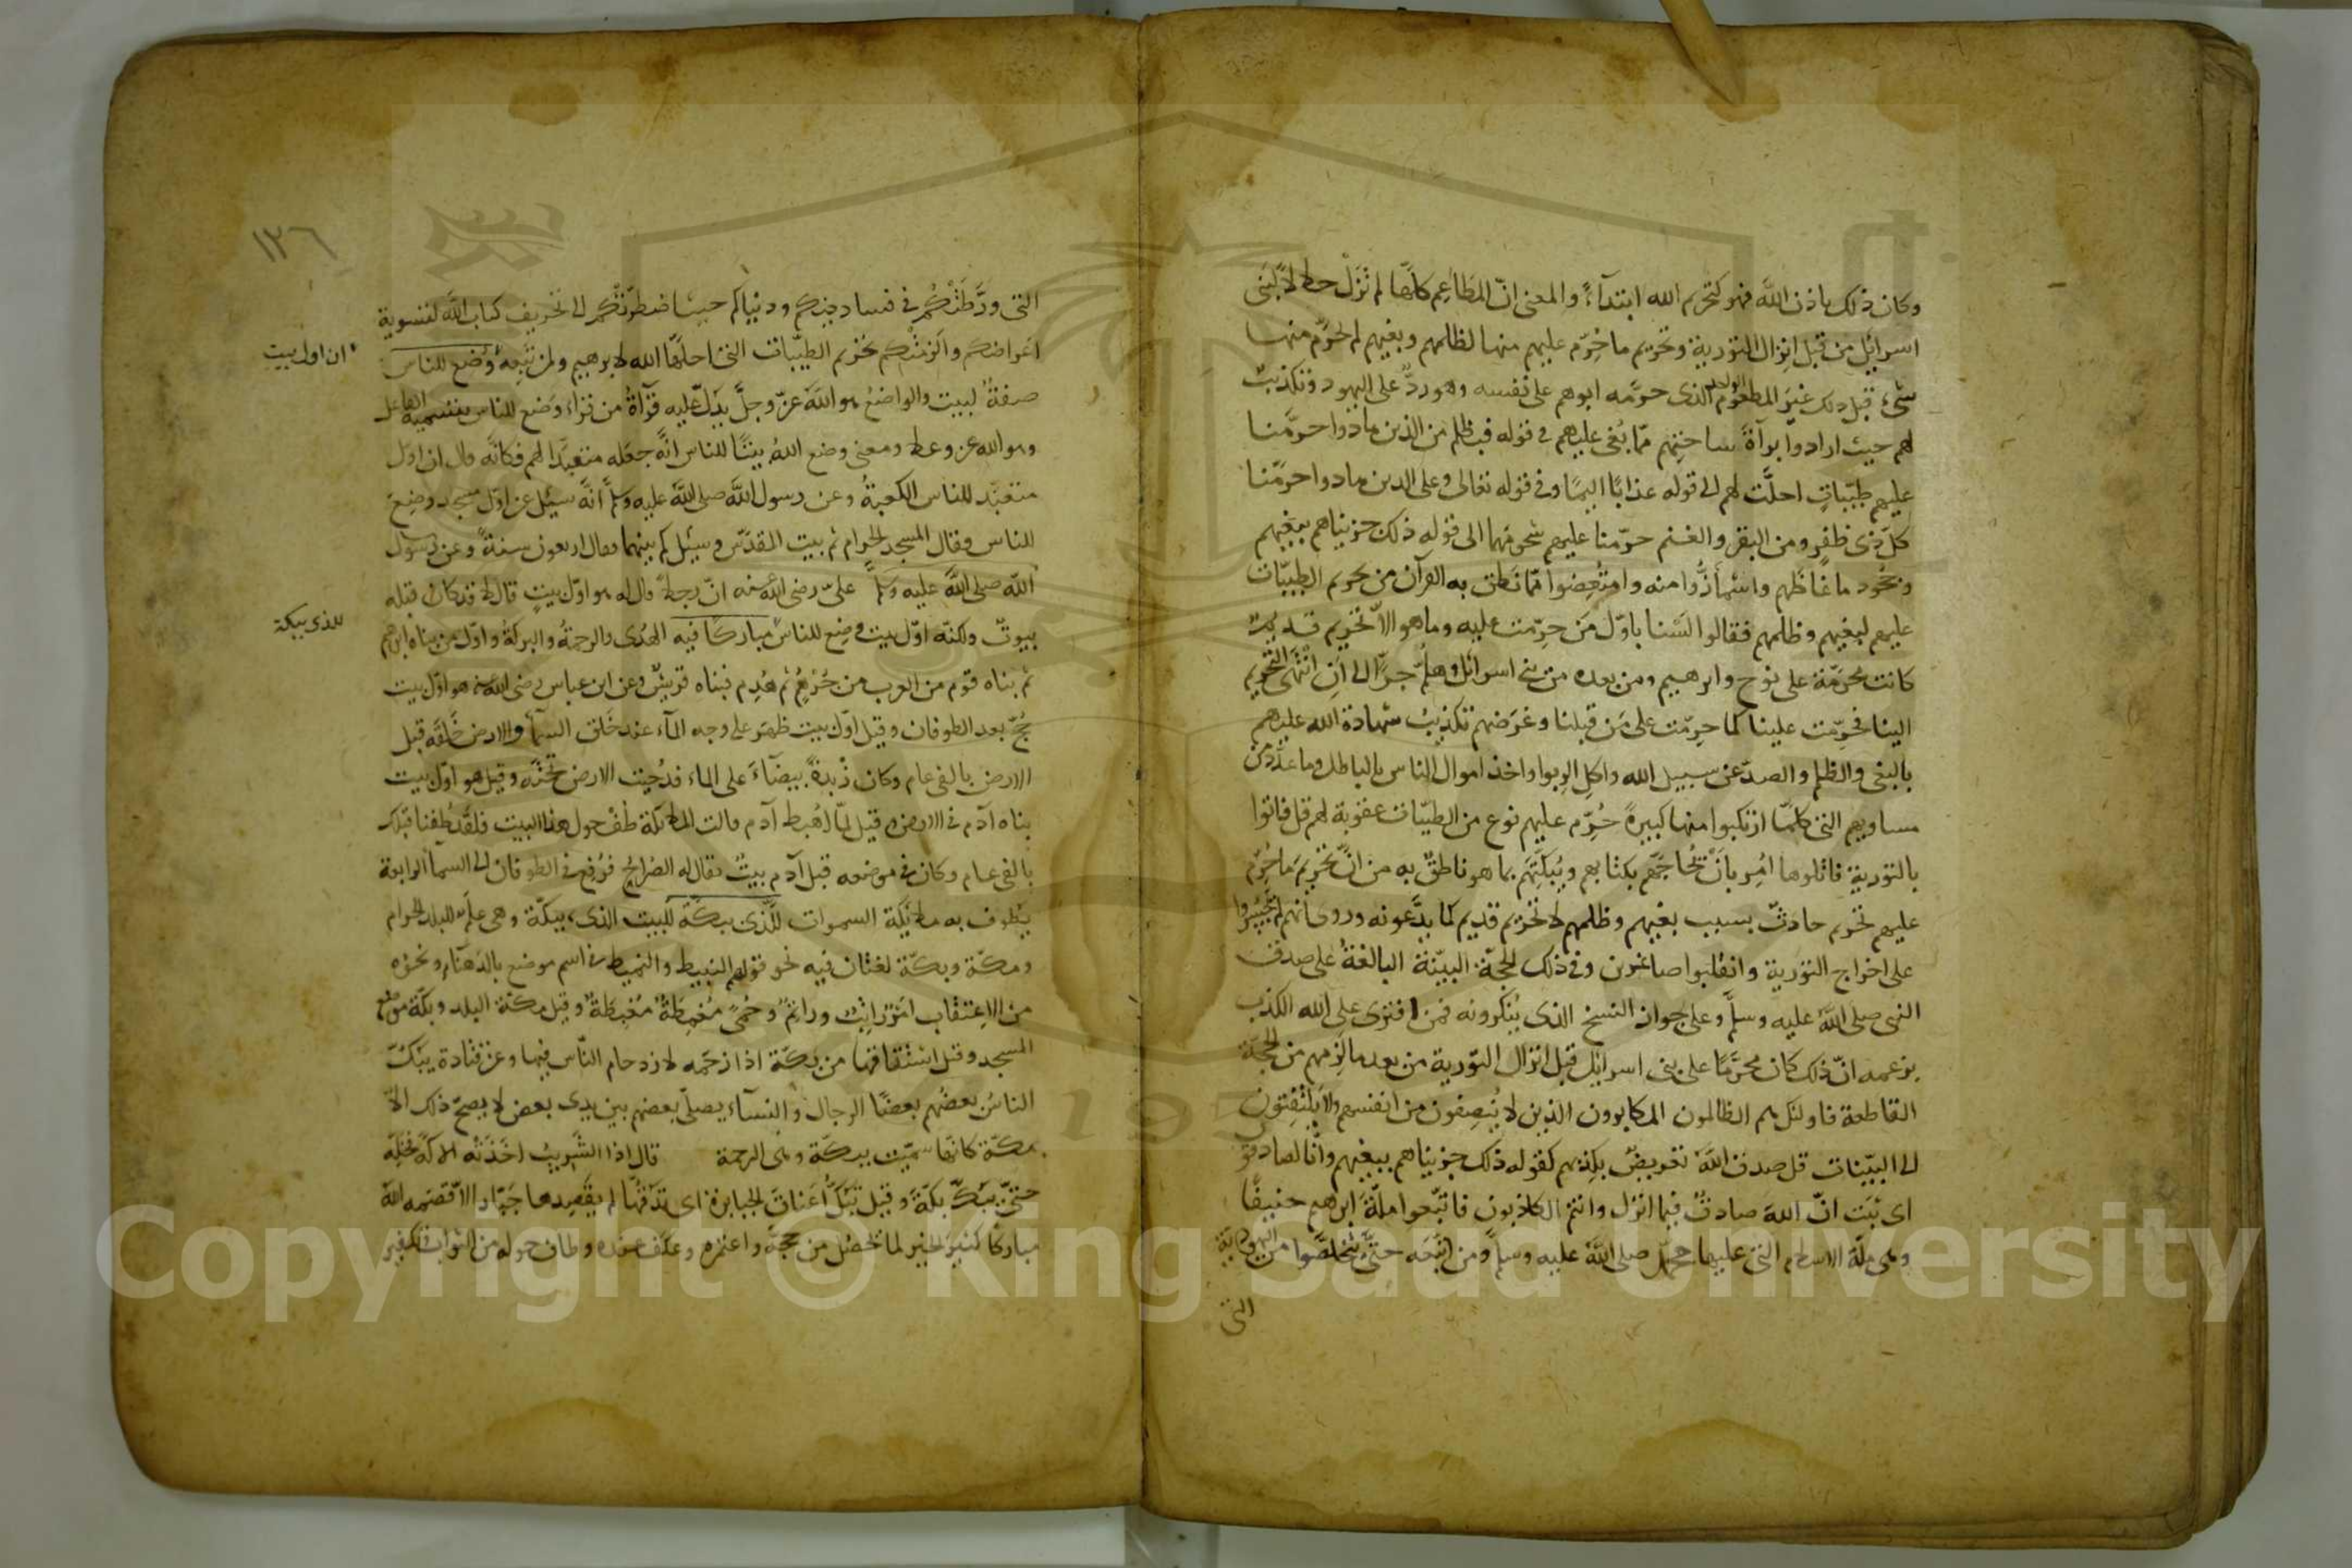 وكان ذلك باذن الله فهو كتحريم الله ابتداءً والمعنى انّ المطاعم كلّها لم تزل حلالا لبنى
اسرائيل من قبل انزال التورية وتحريم ما حُرّم عليهم منها لظلمهم وبغيهم لم يحرّم منها
شئ قبل ذلك غير المطعوم الواحد الذى حرّمه ابوهم على نفسه وهو ردٌّ على اليهود وتكذيبٌ
لهم حيث ارادوا براءة ساحتهم ممّا نُعى عليهم فى قوله فبظلم من الذين هادوا حرّمنا
عليهم طيّباتٍ احلّت لهم الى قوله عذابًا اليمًا وفى قوله تعالى وعلى الذين هادوا حرّمنا
كلّ ذى ظفرٍ ومن البقر والغنم حرّمنا عليهم شحومَهما الى قوله ذلك جزيناهم ببغيهم
وجُحود ما غاظهم واشمأزُّوا منه وامتُعِضوا ممّا نَطق به القرآن من تحريم الطيبّات
عليهم لبغيهم وظلمهم فقالوا لَسْنا باوّل مَن حرّمت عليه وما هو الاّ تحريم قديمٌ
كانت محرّمة على نوح وابرهيم ومن بعده من بنى اسرائل وهلمّ جرّا الى اَن انتهى التحريم
الينا فحُرّمت علينا كما حرّمت على مَن قبلنا وغرضهم تكذيبُ شهادة الله عليهم
بالبغى والظلم والصدّ عن سبيل الله واكلِ الربوا واخذ اموال الناس بالباطل وما عدّد من
مساويهم التى كلّما ارتكبوا منها كبيرةً حُرّم عليهم نوع من الطيّبات عقوبة لهم قل فاتوا
بالتورية فاتلوها اُمر بانْ يُحاجّهم بكتابهم ويُبكّتهم بما هو ناطقٌ به من انّ تحريمَ ما حُرّم
عليهم تحريم حادثٌ بسبب بغيهم وظلمهم لا تحريم قديم كما يدَّعونه وروى انهم لم يجسُروا
على اخراج التورية وانقلبوا صاغرين وفى ذلك الحجّة البيّنة البالغةُ على صدق
النبى صلى الله عليه وسلّم وعلى جواز النسخ الذى يُنكرونه فمن افترى على الله الكذب
بزعمه انّ ذلك كان محرّمًا على بنى اسرائل قبل انزال التورية من بعد ما لزمهم من الحجّة
القاطعة فاولئك هم الظالمون المكابرون الذين لا يُنصفون من انفسهم ولا يلتفتون
الى البيّنات قل صدق الله تعريضٌ بكذبهم كقوله ذلك جزيناهم ببغيهم وانّا لصادقون
اى ثبَت انّ الله صادقٌ فيما انزل وانتم الكاذبون فاتّبعوا ملّة ابرهيم حنيفًا
وهى ملّة الاسلام التى عليها محمّد صلى الله عليه وسلم ومن اتّبعه حتّى تتخلّصوا من اليهودية
التى
١٢٦
التى ورّطتْكُم فى فساد دينكم ودنياكم حيث اضطرّتكم الى تحريف كتاب الله لتسوية
اغراضكم والزمتْكم تحريم الطيّبات التى احلّها الله لابرهيم ولمن تبِعه وُضع للناس
ان اول بيت
صفةٌ لبيت والواضع هو الله عزّ وجلّ يدلّ عليه قراةُ من قراء وَضع للناس بتسمية الفاعل
وهو الله عز وعلا ومعنى وضع اللهُ بيتًا للناس انّه جعَله متعبَّدا لهم فكانّه قال ان اوّل
متعبّد للناس الكعبةُ وعن رسول الله صلى الله عليه وسلم انّه سُئل عن اوّل مسجد وضِعَ
للناس فقال المسجد الحرام ثم بيت المقدّس وسُئل كم بينهما فقال اربعون سنةً وعن رسول
الله صلى الله عليه وسلم علىّ رضى الله عنه انّ رجلا قال له هو اوّل بيتٍ قال لا قد كان قبله
بيوتٌ ولكنّه اوّل بيت وضِع للناس مباركًا فيه الهُدى والرحمةُ والبركةُ واوّل من بناه ابرهيم
للذى ببكة
ثم بناه قوم من العرب من جُرْهُم ثم هُدِم فبناه قريشٌ وعن ابن عباس رضى الله عنه هو اوّل بيت
حُجّ بعد الطوفان وقيل اوّل بيت ظهَر على وجه الماء عند خَلق السماء والارض خَلَقه قبل
الارض بالفى عام وكان زُبدةً بيضاءَ على الماء فدُحيت الارض تحته وقيل هو اوّل بيت
بناه آدم فى الارض وقيل لمّا اُهبط آدم قالت الملائكة طُفْ حول هذا البيت فلقد طُفنا قبلك
بالفى عام وكان فى موضعه قبل آدم بيتٌ يقال له الضُراحُ فرُفع فى الطوفان الى السماء الرابعة
يطوف به ملائكة السموات للّذى ببكّة للبيت الذى ببكّة وهى علَم للبلد الحرام
ومكّة وبكّة لغتان فيه نحو قولهم النبيط والنميط فى اسم موضع بالدهناء ونحوه
من الاعتقاب امرٌ راتبٌ وراتمٌ وحُمّى مُغمِطةٌ مُغبِطةٌ وقيل مكّة البلد وبكّة موضع
المسجد وقيل اشتقاقها من بكّه اذا زحَمه لازدحام النّاس فيها وعن قتادة يبُكّ
الناسُ بعضُهم بعضًا الرجال والنساء يصلّى بعضهم بين يدى بعض لا يصحّ ذلك الاّ
بمكّة كانّها سمّيت ببكّة وهى الزحمة قال اذا الشريبُ اخذتْه الاكّة فخلّه
حتّى يبُكّ بكّةً وقيل تبُكّ اعناقَ الجبابرة اى تدقُّها لم يقصِدها جبّار الاّ قصَمه الله
مباركًا كثيرَ الخير لما يحصُل من حجّه واعتمره وعكف عنده وطاف حوله من الثواب وتكفير
Copyright © King Saud University